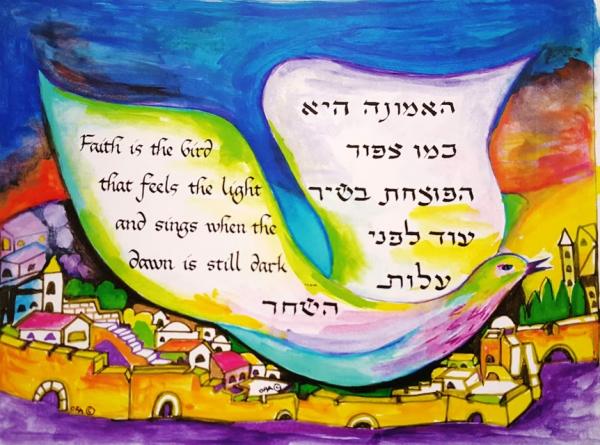 Faith is the bird
that feels the light
and sings when the
dawn is still dark
האמונה היא
כמו צפור
הפוצחת בשיר
עוד לפני
עלות
השחר
ORA ©
ORA ©